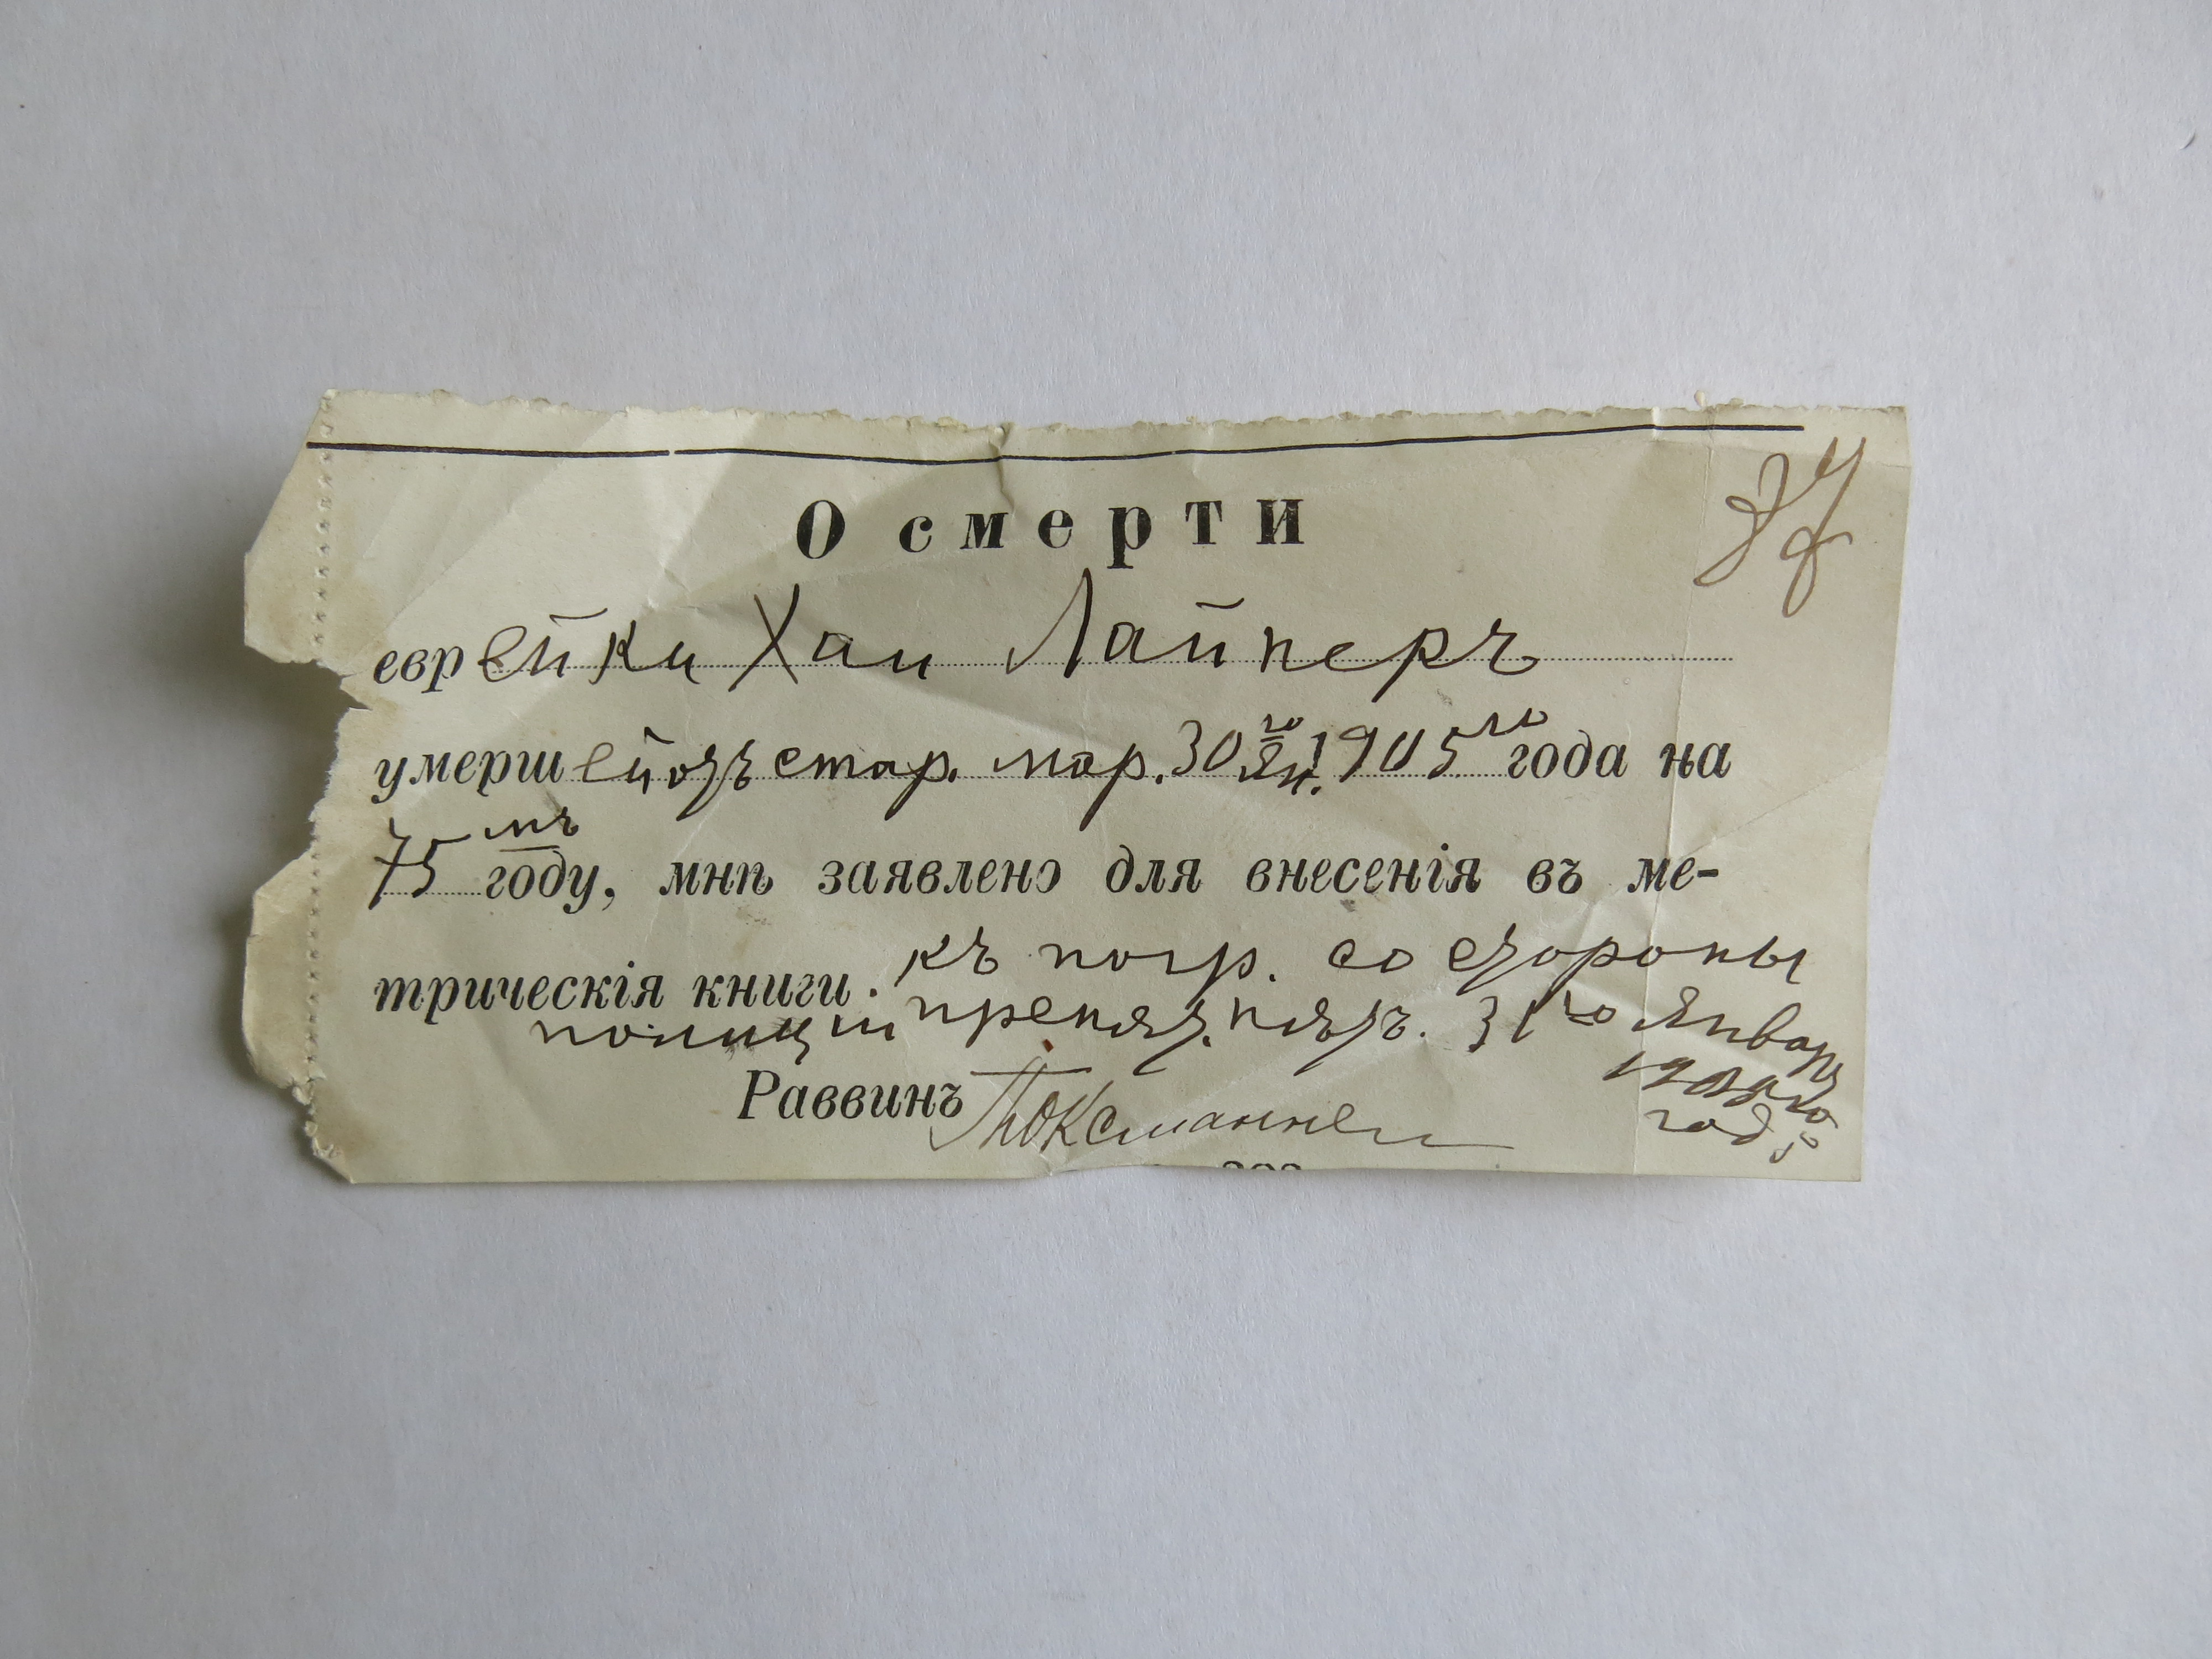 О смерти
еврейки Хаи Лайнеръ
умершей отъ стар. мар. 30го Ян. 1905го года на
75мъ году, мнѣ заявлено для внесенія въ ме-
трическія книги. къ погр. со стороны
полиціи препят. нѣтъ. 31го Январ
190
год
Раввинъ